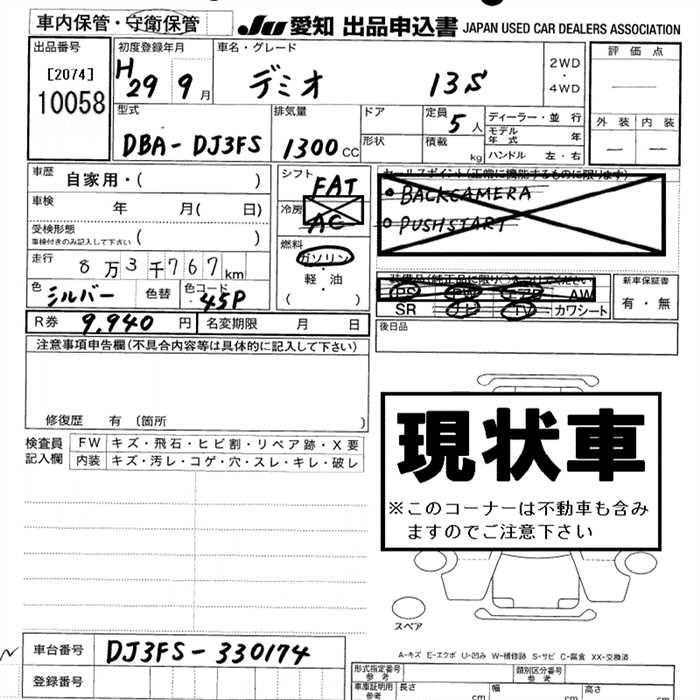 車内保管・守衛保管 JU 愛知 出品申込書 JAPAN USED CAR DEALERS ASSOCIATION
出品番号 初度登録年月 車名・グレード 2WD・4WD 評価点
[2074] H29 9月 デミオ 13S
10058
型式 排気量 ドア 定員 5人 ディーラー・並行 外装 内装
DBA-DJ3FS 1300CC 形状 積載 kg モデル年式 年
ハンドル 左・右
車歴 自家用・( ) シフト FAT セールスポイント(正常に機能するものに限ります)
車検 年 月( 日) 冷房 AC BACKCAMERA
受検形態 車検付きのみ記入して下さい ( ) 燃料 ガソリン・軽・油 ( ) PUSHSTART
走行 8万3千767km 装備品(純正品に限り)
色 シルバー 色替 色コード 45P AW 新車保証書
SR TV カワシート 有・無
R券 9,940円 名変期限 月 日 後日品
注意事項申告欄(不具合内容等は具体的に記入して下さい)
修復歴 有 (箇所 )
検査員記入欄 FW キズ・飛石・ヒビ割・リペア跡・X要
内装 キズ・汚レ・コゲ・穴・スレ・キレ・破レ
現状車
※このコーナーは不動車も含み
ますのでご注意下さい
スペア
A-キズ E-エクボ U-凹み W-補修跡 S-サビ C-腐食 XX-交換済
車台番号 DJ3FS-330174
登録番号
形式指定番号 参考 類別区分番号 参考
車庫証明用 参考 長さ cm 幅 cm 高さ cm